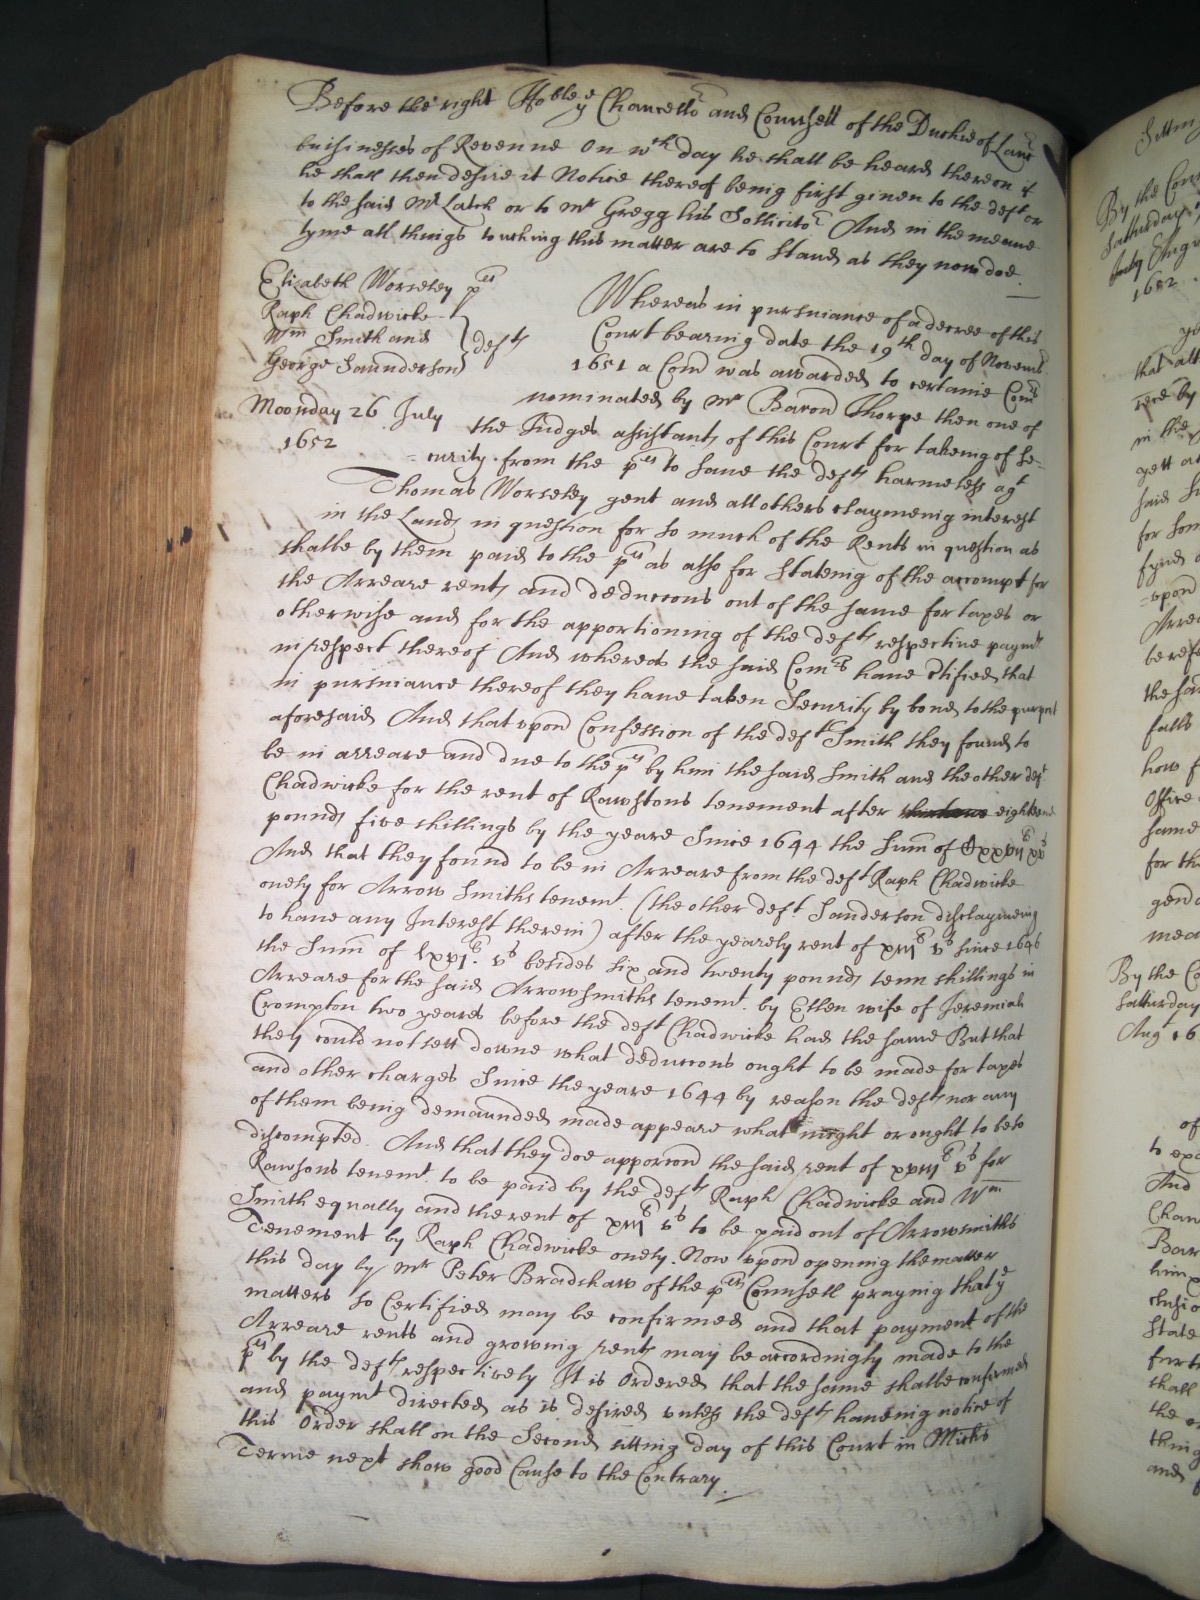 Before the right Hoble ye Chancellr and Counsell of the Duchie of Lanc
buisinesses of Revenue On wch day he shall be heard thereon if
he shall then desire it Notice thereof being first given to the deft or
to the said Mr Latch or to Mr Gregg his Sollicitor And in the meane
tyme all things touching this matter are to stand as they now doe.
Elizabeth Worseley pes
Raph Chadwicke
Wm Smith and
George Saunderson defts
Moonday 26 July
1652
Whereas in pursuiance of a decree of this
Court bearing date the 19th day of Novemb
1651 a Com was awarded to certaine Comrs
nominated by Mr Baron Thorpe then one of
the Judges assistants of this Court for takeing of Se=
=curity from the pes to save the defts harmeless agt
Thomas Worseley gent and all others claymeing interest
in the Lands in question for so much of the Rents in question as
shalbe by them paid to the pes as also for stateing of the accompt for
the Arreare rents and deduccons out of the same for taxes or
otherwise and for the apportioning of the defts respective paymts
in respect thereof And whereas the said Comrs have certified that
in pursuiance thereof they have taken Security by bond to the purpose
aforesaid And that upon Confession of the deft Smith they found to
be in arreare and due to the pes by him the said Smith and the other deft
Chadwicke for the rent of Rawstons tenement after eighteene
pounds five shillings by the yeare Since 1644 the Sum of
And that they found to be in Arreare from the deft Raph Chadwicke
onely for Arrow Smiths tenemt. (the other deft Sanderson disclaymeing
to have any Interest therein) after the yearely rent of xiiil vs since 1646
the Sum of lxvil. vs besides six and twenty pounds tenn shillings in
Arreare for the said Arrowsmiths tenemt. by Ellen wife of Jeremiah
Crompton two yeares before the deft Chadwicke had the same But that
they could not sett downe what deduccons ought to be made for taxes
and other charges Since the yeare 1644 by reason the defts nor any
of them being demaunded made appeare what might or ought to be so
discompted. And that they doe apporcon the said rent of xviiil vs for
Rawsons tenemt. to be paid by the defts Raph Chadwicke and Wm
Smith equally and the rent of xiiil vs to be paid out of Arrowsmiths
Tenement by Raph Chadwicke onely. Now upon opening the matter
this day by Mr Peter Bradshaw of the pes Counsell praying that ye
matters so Certified may be confirmed and that payment of the
Arreare rents and growing rents may be accordingly made to the
pes by the defts respectively It is Ordered that the same shalbe confirmed
and paymt directed as is desired unless the defts haveing notice of
this Order shall on the Second sitting day of this Court in Michs
Terme next show good Cause to the Contrary.
Sitting
By the
Satturday
1652
that all
in the
gett
said
for
upon
Arrea
the
falls
how
Office
same
for the
mea
By the
Satturday
Aug
of
to
And
Chan
Bar
State
shall
the
thing
and